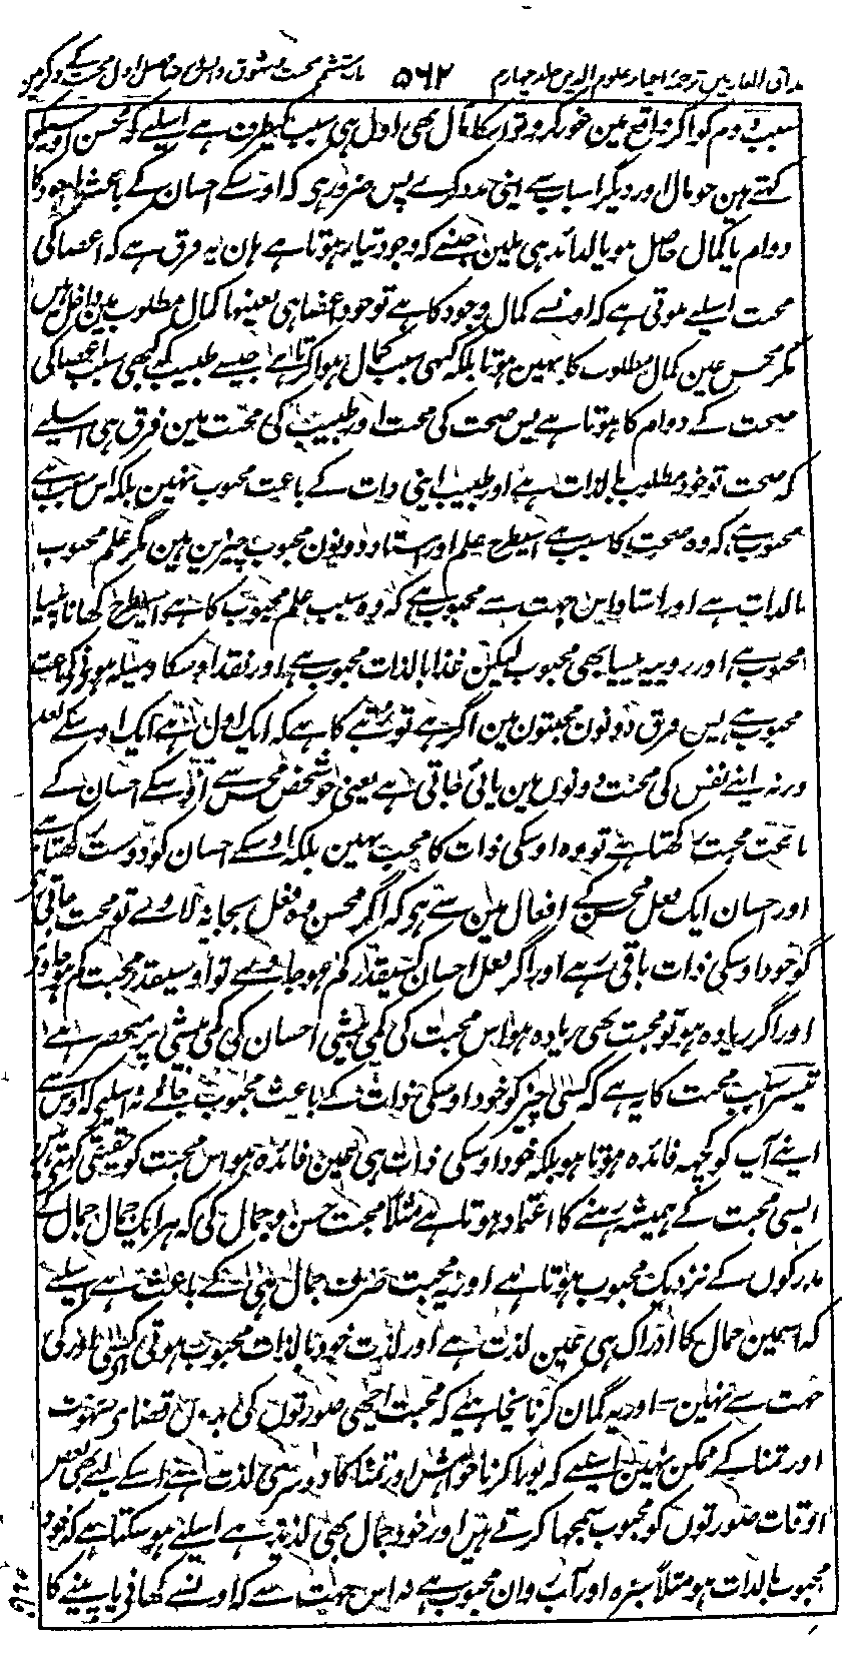 مذاق العارفین ترجمہ احیاء علوم الدین جلد چہارم ۵۶۲ باب ششم محبت و شوق و انس و رضا فصل اول محبت کے ذکر مین
سبب دوم کو اگر واقع مین غور کرو تو اسکا مآل بھی اول ہی سبب کیطرف ہے اسلیے کہ محسن اوسیکو
کہتے ہین جو مال اور دیگر اسباب سے اپنی مدد کرے پس ضرور ہی کہ اوسکے احسان کے باعث وجود کا
دوام یا کمال حاصل ہو یا لذائذ ہی ملین جنسے کہ وجود تیار ہوتا ہے ہان یہ فرق ہے کہ اعضا کی
محبت اسلیے ہوتی ہے کہ اونسے کمال وجود کا ہے تو خود اعضا ہی بعینہا کمال مطلوب مین داخل ہین
مگر محسن عین کمال مطلوب کا نہین ہوتا بلکہ کبھی سبب کمال ہوا کرتا ہے جیسے طبیب کہ کبھی سبب اعضا کی
صحت کے دوام کا ہوتا ہے پس صحت کی محبت اور طبیب کی محبت مین فرق ہی اسلیے
کہ صحت تو خود مطلوب بالذات ہے اور طبیب اپنی ذات کے باعث محبوب نہین بلکہ اس سبب سے
محبوب ہے کہ وہ صحت کا سبب ہے اسیطرح علم اور استاد دونون محبوب چیزین ہین مگر علم محبوب
بالذات ہے اور استاد این جہت سے محبوب ہے کہ وہ سبب علم محبوب کا ہے اسیطرح کھانا پینا
محبوب ہے اور روپیہ پیسا بھی محبوب لیکن غذا بالذات محبوب ہے اور نقد اوسکا وسیلہ ہونیکے باعث
محبوب ہے پس فرق دونون محبتون مین اگر ہے تو رتبے کا ہے کہ ایک اول ہے ایک اوسکے بعد
ورنہ اپنے نفس کی محبت دونوں مین پائی جاتی ہے یعنی جو شخص محسن سے اوسکے احسان کے
باعث محبت رکھتا ہے تو وہ اوسکی ذات کا محب نہین بلکہ اوسکے احسان کو دوست رکھتا ہے
اور احسان ایک فعل محسن کے افعال مین سے ہو کہ اگر محسن وہ فعل بجا نہ لاوے تو محبت جاتی رہے
گو خود اوسکی ذات باقی رہے اور اگر فعل احسان کسیقدر کم ہو جاوے تو اوسیقدر محبت کم ہو جاوے
اور اگر زیادہ ہو تو محبت بھی زیادہ ہو اس محبت کی کمی بیشی احسان کی کمی بیشی پر منحصر ہے
تیسرا سبب محبت کا یہ ہے کہ کسی چیز کو خود اوسکی ذات کے باعث محبوب جانے نہ اسلیے کہ اوس سے
اپنے آپ کو کچہہ فائدہ ہوتا ہو بلکہ خود اوسکی ذات ہی عین فائدہ ہو اس محبت کو حقیقی کہتے ہین
ایسی محبت کے ہمیشہ رہنے کا اعتماد ہوتا ہے مثلاً محبت حسن و جمال کی کہ ہر ایک جمال جمال کے
مدرکوں کے نزدیک محبوب ہوتا ہے اور یہ محبت صرف جمال ہی کے باعث ہے اسلیے
کہ اسمین جمال کا ادراک ہی عین لذت ہے اور لذت خود بالذات محبوب ہوتی ہے کسی اور کی
جہت سے نہین – اور یہ گمان کرنا نچاہیے کہ محبت اچھی صورتوں کی بدون قضای شہوت
اور تمنا کے ممکن نہین اسلیے کہ پورا کرنا خواہش اور تمنا کا دوسری لذت ہے اسکے لیے بھی بعض
اوقات صورتوں کو محبوب سمجھا کرتے ہین اور خود جمال بھی لذیذ ہے اسلیے ہو سکتا ہے کہ خود
محبوب بالذات ہو مثلاً سبزہ اور آب روان محبوب ہے نہ اس جہت سے کہ اونسے کھانے یا پینے کا